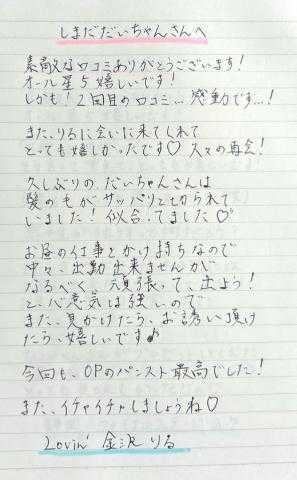 しまだだいちゃんさんへ
素敵な口コミありがとうございます!
オール星5嬉しいです!
しかも!2回目の口コミ…感動です…!
また、りるに会いに来てくれて
とっても嬉しかったです♡ 久々の再会!
久しぶりの だいちゃんさんは
髪の毛がサッパリと切られて
いました!似合ってました♡
お昼の仕事とかけ持ちなので
中々、出勤出来ませんが
なるべく、頑張って、出よう!
と、心意気は強いので
また、見かけたら、お誘い頂け
たら、嬉しいです♪
今回も、OPのパンスト最高でした!
また、イチャイチャしましょうね♡
Lovin' 金沢 りる